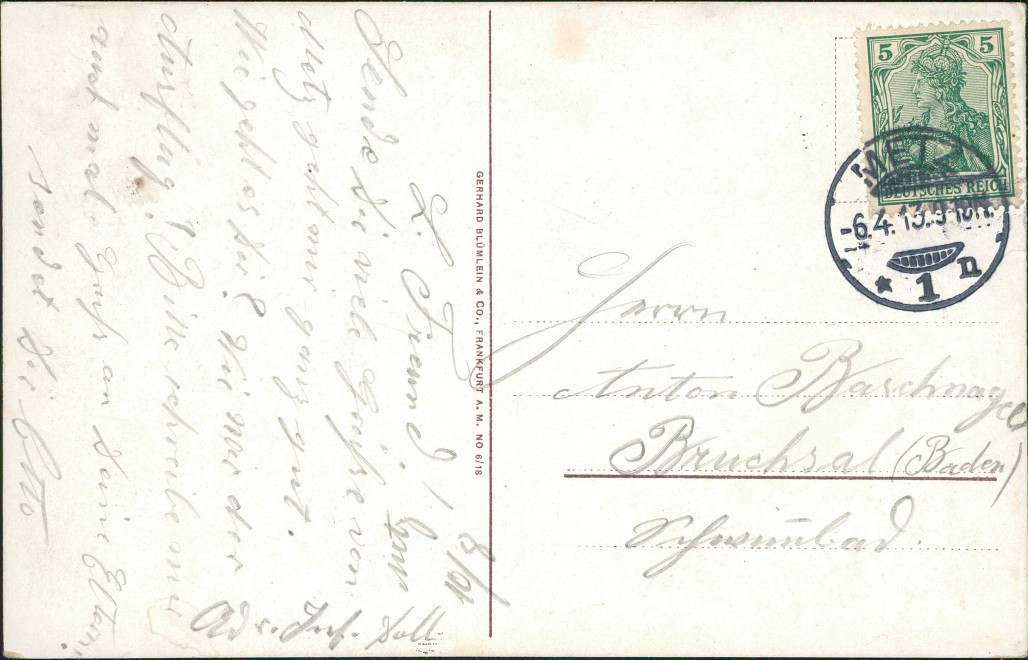 L. Freund!
Sende dir viele Grüße von
Metz geht mir ganz gut.
Wie geht es dir? Wie war der
Ausflug? Bitte schreibe mir
auch mal. Gruß an deine Eltern.
sendet dir Otto
Adr. Inf.
GERHARD BLÜMLEIN & CO., FRANKFURT A. M. NO 6/18
5 5
DEUTSCHES REICH
METZ
-6.4.13.9-10N.
* 1 n
Herrn
Anton Baschnagel
Bruchsal (Baden)
Schwimbad.